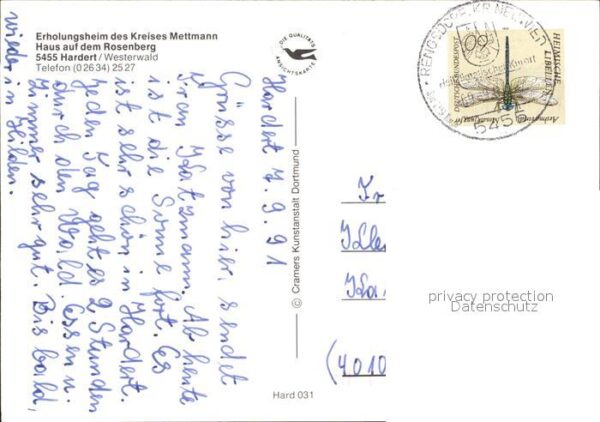 Erholungsheim des Kreises Mettmann
Haus auf dem Rosenberg
5455 Hardert / Westerwald
Telefon (0 26 34) 25 27
DIE QUALITÄTS
ANSICHTSKARTE
© Cramers Kunstanstalt Dortmund
Hard 031
Hardert 7.9.91
Grüsse von hier, sendet
Frau Katzmann. Ab heute
ist die Sonne fort. Es
ist sehr schön in Hardert.
Jeden Tag geht es 2 Stunden
durch den Wald. Essen u.
Zimmer sehr gut. Bis bald,
wieder in Hilden.
(4010
DEUTSCHE BUNDESPOST
60
HEIMISCHE
LIBELLEN
RENGSDORF, KR NEUWIED
5455
privacy protection
Datenschutz